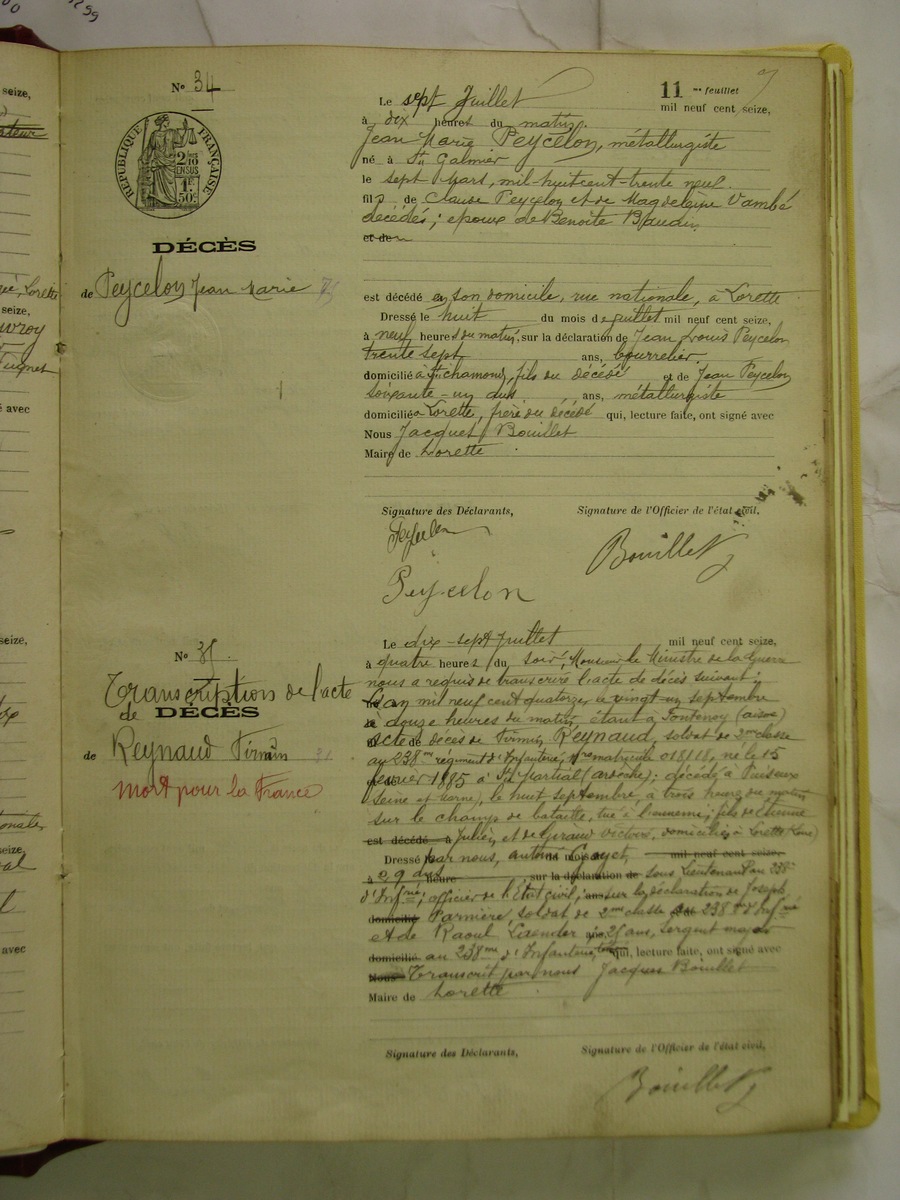 N° 34
11 me feuillet
Le sept Juillet mil neuf cent seize,
à dix heures du matin.
Jean Marie Peycelon, métallurgiste
né à St Galmier
le sept Mars, mil-huit-cent-trente neuf.
fils de Claude Peycelon et de Magdeleine Vambé
décédés; époux de Benoite Baudin
et de
RÉPUBLIQUE FRANÇAISE
2/10 EN SUS
1F 50c
DÉCÈS
de Peycelon Jean Marie
est décédé en son domicile, rue nationale, a Lorette
Dressé le huit du mois de juillet mil neuf cent seize,
à neuf heures du matin, sur la déclaration de Jean Louis Peycelon
trente sept ans, bourrelier
domicilié a St chamond, fils du décédé et de Jean Peycelon
soixante-un ans, ans, métallurgiste
domicilié a Lorette, frère du décédé qui, lecture faite, ont signé avec
Nous Jacques Bouillet
Maire de Lorette
Signature des Déclarants, Signature de l'Officier de l'état civil.
Peycelon
Peycelon
Bouillet
N° 35.
Transcription de l'acte
de DÉCÈS
de Reynaud Firmin
mort pour la France
Le dix-sept Juillet mil neuf cent seize,
à quatre heures du soir, Monsieur le Ministre de la Guerre
nous a requis de transcrire l'acte de décès suivant:
L'an mil neuf cent quatorze le vingt-un septembre
à douze heures du matin étant à Fontenoy (aisne)
acte de décès de Firmin Reynaud, soldat de 2me classe
au 238me régiment d'Infanterie, matricule 018118, né le 15
février 1885 à St Martial (ardèche); décédé à Puiseux
Seine et Marne), le huit septembre, à trois heures du matin
sur le champ de bataille, tué à l'ennemi; fils de Etienne
est décédé à Julien, et de Giraud Victoire, domiciliés à Lorette (Loire)
Dressé par nous, antoine Gayet, mil neuf cent seize
à 29 ans heure sur la déclaration de sous Lieutenant au 238
d'Infrie; officier de l'Etat civil, sur la déclaration de Joseph
domicilié Parmière soldat de 2me classe au 238me d'Infrie
et de Raoul Laender 25 ans, sergent major
domicilié au 238me d'Infanterie, qui, lecture faite, ont signé avec
Nous Transcrit par nous Jacques Bouillet
Maire de Lorette
Signature des Déclarants, Signature de l'Officier de l'état civil.
Bouillet